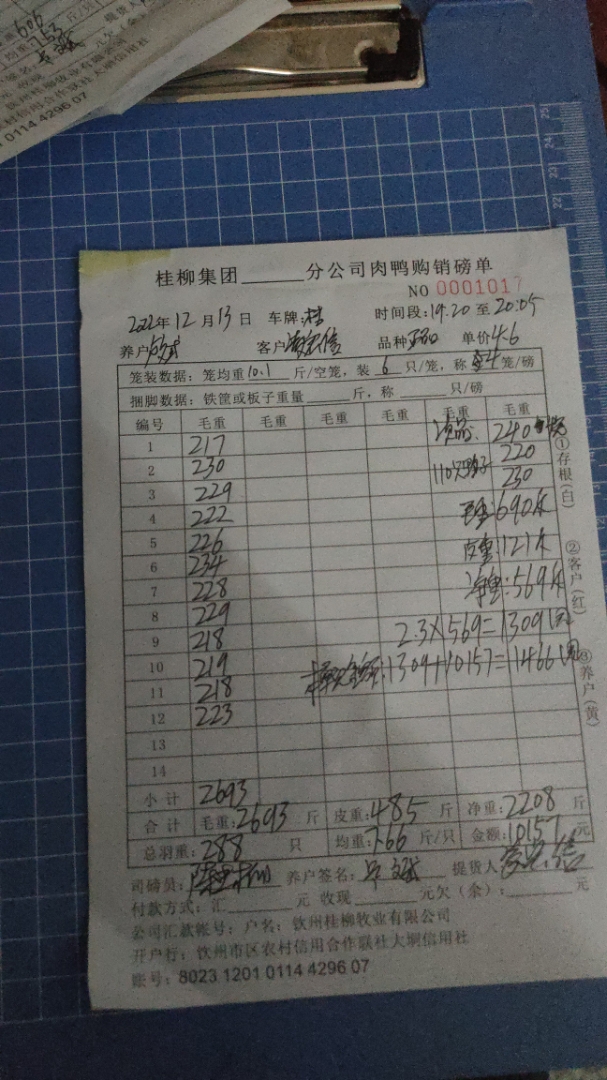 606
均重:753 斤/只
0114 4296 07
桂柳集团______分公司肉鸭购销磅单
NO 0001017
2022年12月13日 车牌:桂 时间段:19:20至20:05
养户 客户 品种 单价4.6
笼装数据:笼均重10.1斤/空笼,装6只/笼,称4笼/磅
捆脚数据:铁筐或板子重量______斤,称______只/磅
编号 毛重 毛重 毛重 毛重 毛重 毛重 毛重
1 217 240
2 230 110只 220
3 229 230
4 222 毛重:690斤
5 226 皮重:121斤
6 234 净重:569斤
7 228
8 229 2.3×569=1309元
9 218
10 219 1309+10157=11466元
11 218
12 223
13
14
小计 2693
合计 毛重:2693斤 皮重:485斤 净重:2208斤
总羽重:288只 均重:7.66斤/只 金额:10157元
司磅员: 养户签名: 提货人
付款方式:汇______元 收现______元欠(余):______元
公司汇款帐号:户名:钦州桂柳牧业有限公司
开户行:钦州市区农村信用合作联社大垌信用社
账号:8023 1201 0114 4296 07
①存根(白)
②客户(红)
③养户(黄)